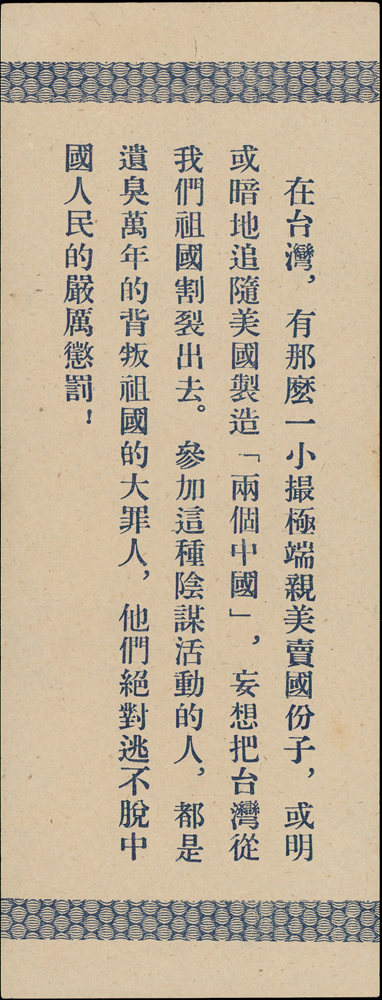 在台灣，有那麽一小撮極端親美賣國份子，或明
或暗地追隨美國製造「兩個中國」，妄想把台灣從
我們祖國割裂出去。參加這種陰謀活動的人，都是
遺臭萬年的背叛祖國的大罪人，他們絕對逃不脫中
國人民的嚴厲懲罰！